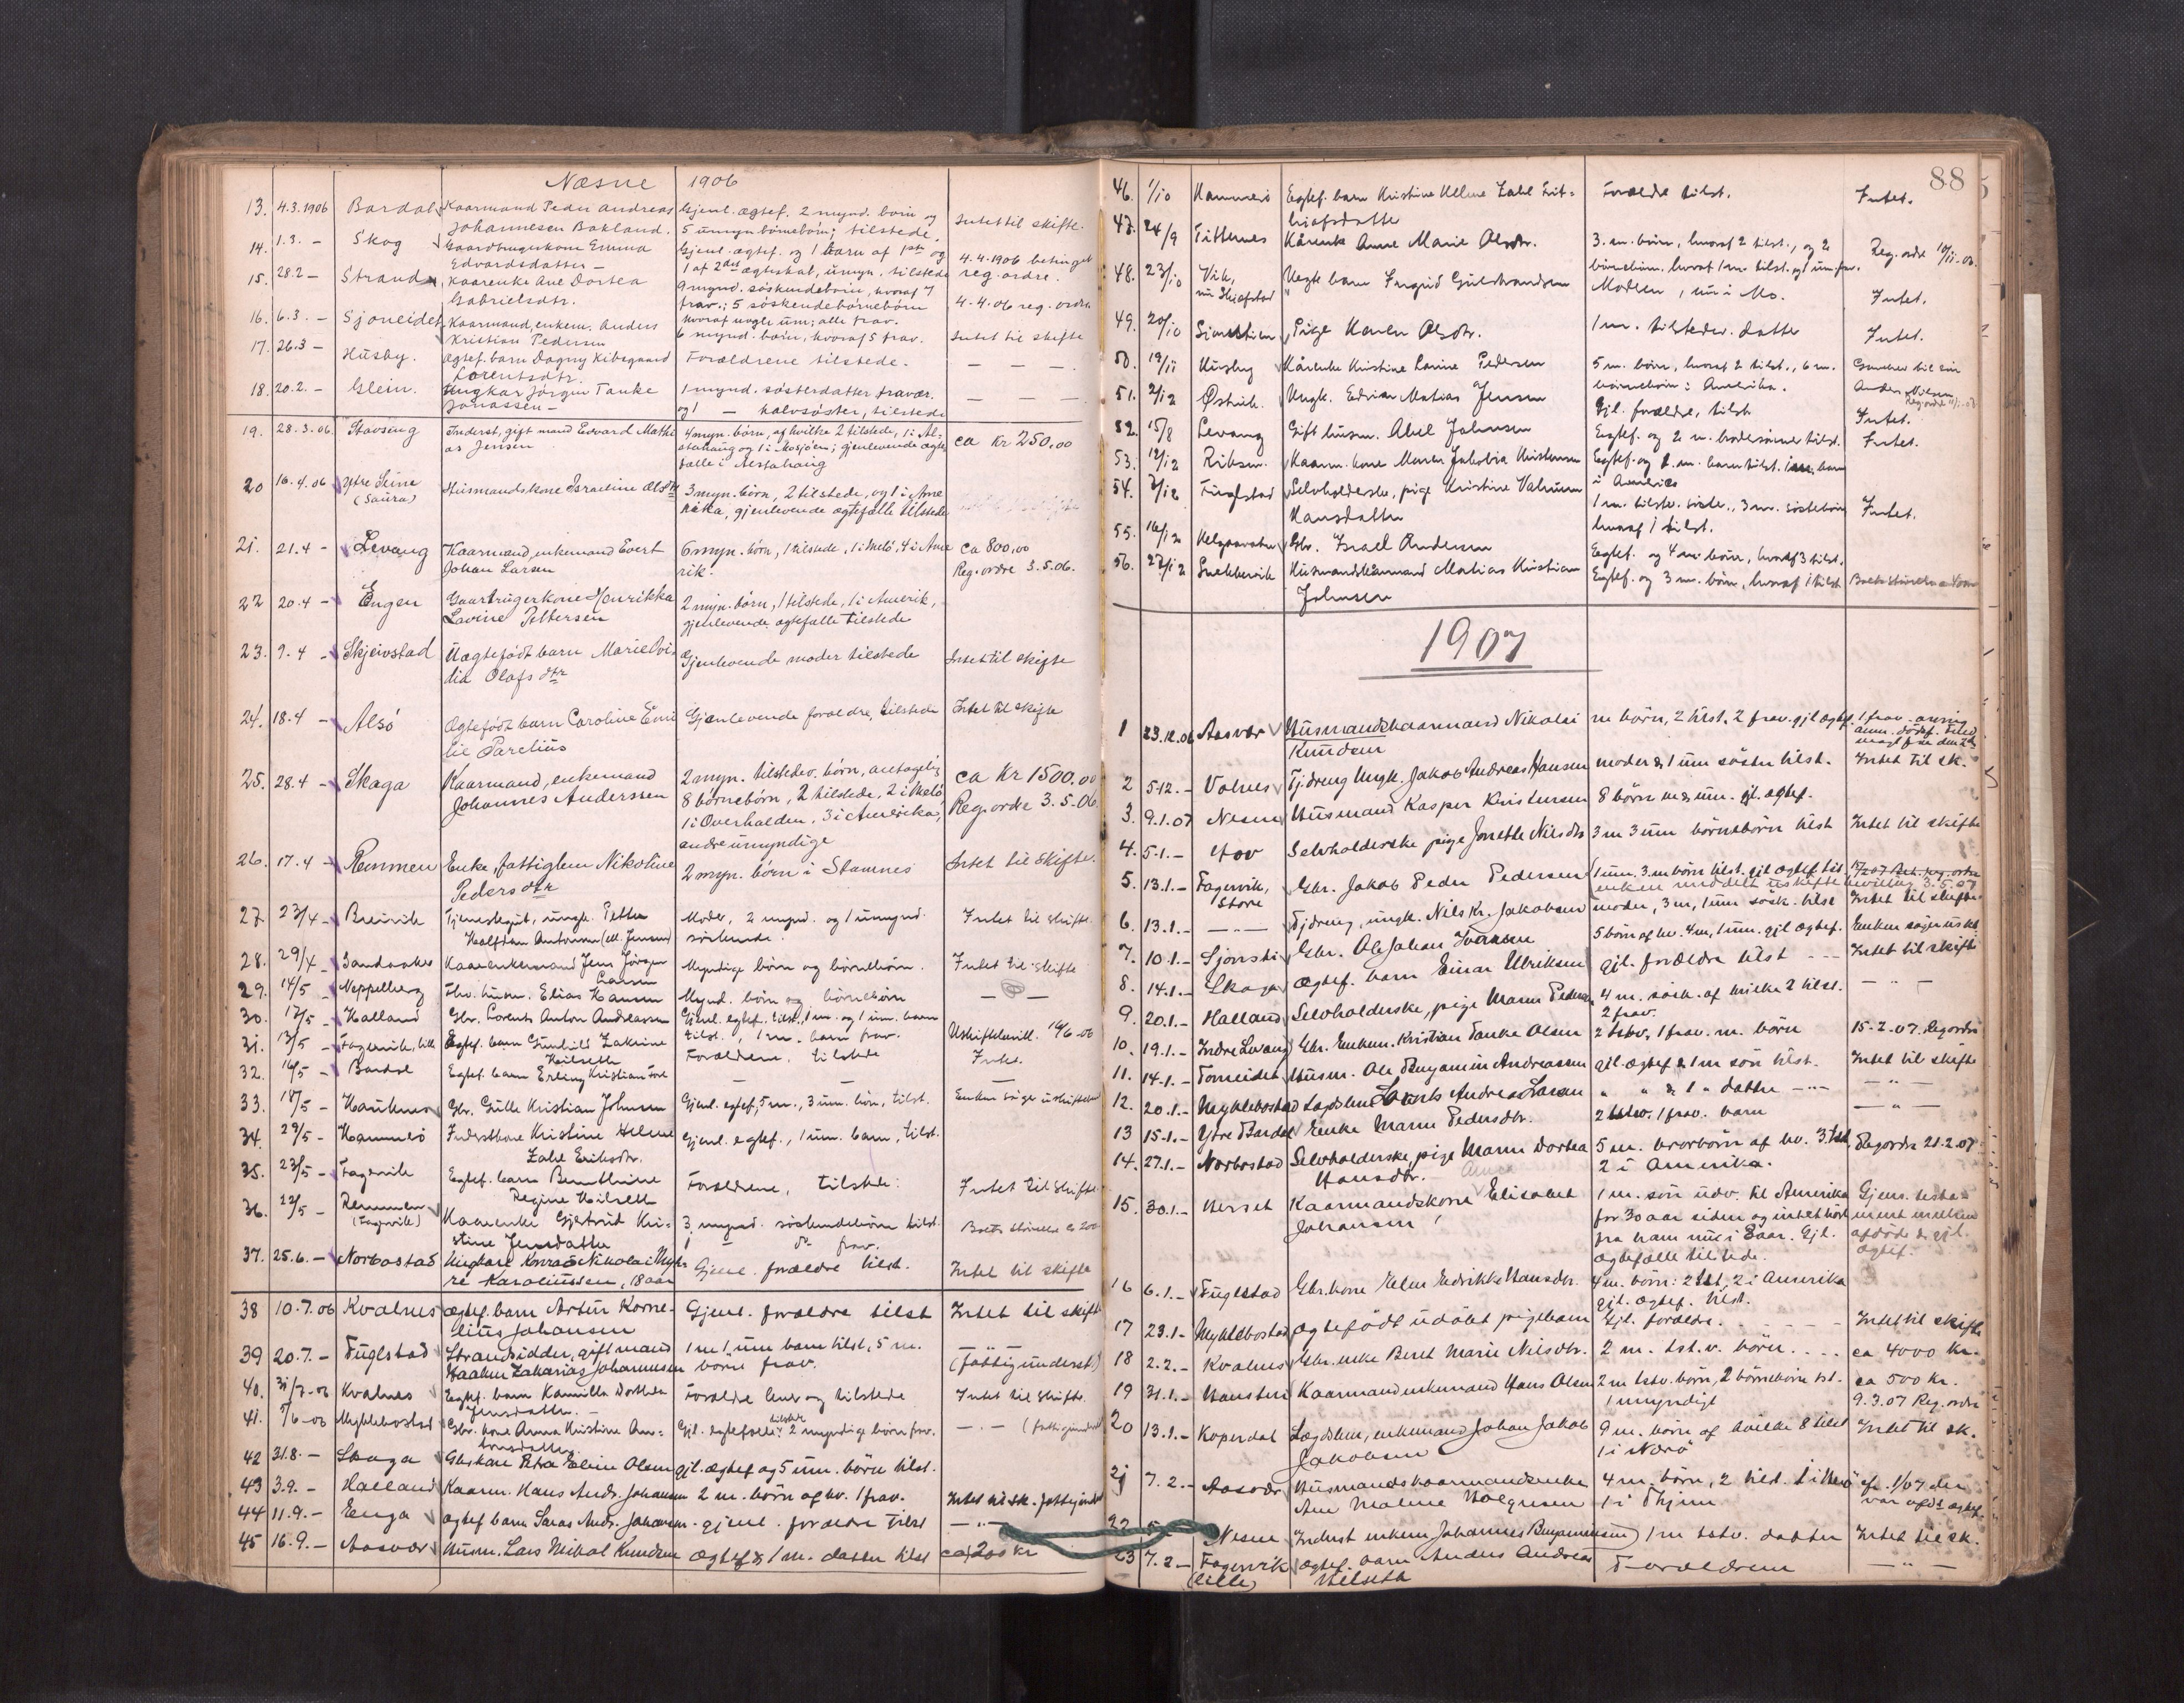 Næsne 1906
13. 4.3.1906 Bardal Kaarmand Peder Andreas Gjenl. ægtef. 2 mynd. børn og Intet til skifte.
Johannesen Bakland. 5 umyn. børnebørn; tilstede.
14. 1.3. – Skog Gaardbrugerkone Emma Gjenl. ægtef. og 1 barn af 1ste og 4.4.1906 betinget
Edvardsdatter – 1 af 2det ægteskab, umyn. tilstede reg. ordre.
15. 28.2 – Strand Kaarenke Ane Dortea 9 mynd. søskendebørn, hvoraf 7 4.4.06 reg. ordre
Gabrielsdtr. frav.; 5 søskendebørnebørn
hvoraf nogle um; alle frav.
16. 6.3. – Sjoneidet Kaarmand, enkem. Anders 6 mynd. børn, hvoraf 5 frav. Intet til skifte
Kristian Pedersen
17. 26.3 – Husby. Ægtef. barn Dagny Kibsgaard Forældrene tilstede. – – –
Lorentsdtr.
18. 20.2. – Glein. Ungkar Jørgen Tanke 1 mynd. søsterdatter fravær. – – –
Jonassen – og 1 – halvsøster, tilstede
19. 28.3.06 Stavseng Inderst, gift mand Edvard Mathi 4 myn. børn, af hvilke 2 tilstede, 1 i Al- ca Kr 250,00
as Jensen stahaug og 1 i Mosjøen; gjenlevende ægte
fælle i Alstahaug
20 16.4.06 Ytre Seine Husmandskone Israeline Olsdtr 3 myn. børn, 2 tilstede, og 1 i Ame
(Saura) rika, gjenlevende ægtefælle tilstede
21. 21.4 – Levang Kaarmand, enkemand Evert 6 myn. børn, 1 tilstede, 1 i Melø, 4 i Ame ca 800,00
Johan Larsen rik. Reg. ordre 3.5.06.
22 20.4 – Engen Gaardbrugerkone Henrikka 2 myn. børn, 1 tilstede, 1 i Amerik,
Lovine Pettersen gjenlevende ægtefælle tilstede
23. 9.4 – Skjeivstad Uægtefødt barn Marie Ovi Gjenlevende moder tilstede Intet til skifte
dia Olafsdtr
24. 18.4 – Alsø Ægtefødt barn Caroline Emi Gjenlevende forældre, tilstede Intet til skifte
lie Parelius
25. 28.4 – Skaga Kaarmand, enkemand 2 myn. tilstedev. børn, antagelig ca Kr 1500,00
Johannes Anderssen 8 børnebørn, 2 tilstede, 2 i Melø Reg. ordre 3.5.06
1 i Overhalden, 3 i Amerika,
andre umyndige
26. 17.4 – Remmen Enke, fattiglem Nikoline 2 myn. børn i Stamnes Intet til skifte.
Pedersdtr
27. 23/4 – Breivik Tjenestegut, ungk. Petter Moder, 2 mynd. og 1 umynd. Intet til skifte
Halfdan Antonsen søskende.
28. 29/4 – Sandaaker Kaarenkemand Jens Jørgen Myndige børn og børnebørn. Intet til skifte
Larsen
29. 14/5 – Neppelberg Fhv. husm. Elias Hansen Mynd. børn og børnebørn – –
30. 17/5 – Halland Gbr. Lorents Anton Andreassen Gjenl. egtef. tilst., 1 m. og 1 um. barn Uskiftebevill. 16/6-06
tilst., 1 m. barn frav.
31. 13/5 – Fagervik, lille Egtef. barn Gunhild Zakrine Forældrene, tilstede Intet.
Hilseth
32. 16/5 – Bardal Egtef. barn Erling Kristian – – –
33. 18/5 – Haukness Gbr. Gulle Kristian Johnsen Gjenl. egtef., 5 m., 3 um. børn, tilst. Enken søger uskiftebev
34. 29/5 – Hammerø Inderstkone Kristine Helene Gjenl. egtef., 1 um. barn, tilst.
Zahl Eriksdtr.
35. 23/5 – Fagervik Egtef. barn Bernthine Forældrene, tilstede. Intet til skifte
Regine Hilseth
36. 22/5 – Remmen Kaarenke Gjertrud Kri- 3 mynd. søskendebørn tilst. Boets størrelse ca 200
(Fagervik) stine Jensdatter 1 – do frav.
37. 25.6. – Norbostad Ungkar Konrad Nikolai Myh- Gjenl. forældre tilst. Intet til skifte
re Karoliussen, 18 aar
38 10.7.06 Kvalnes Ægtef. barn Artur Korne- Gjenl. forældre tilst Intet til skifte
lius Johansen
39 20.7. – Fuglstad Strandsidder, gift mand 1 m 1 um barn tilst, 5 m. – –
Haaken Zakarias Johannesen børn frav. (fattigunderst.)
40. 31/7-06 Kvalnes Egtef. barn Kamilla Dorthea Forældre lever og tilstede Intet til skifte.
Jensdatter. –
41. 5/6-06 Myklebostad Gbr. kone Anna Kristine An- Gjl. egtefælle tilstede 2 myndige børn frav. – . – (fattigunderst
tonsdatter.
42 31.8. – Skaga Gbskone Petra Eline Olsen gjl. ægtef og 5 um. børn tilst.
43 3.9. – Halland Kaarm. Hans Andr. Johansen 2 m. børn af hv. 1 frav. Intet til sk. fattigunderst
44 11.9. – Enga ægtef barn Saras Andr. Johansen gjenl. forældre tilst – „ –
45 16.9. – Aasvær Husm. Lars Mikal Knudsen ægtef & 1 m. datter tilst ca 200 kr
88
46. 1/10 Hammerø Egtef. barn Kristine Helene Zahl Frit- Forældre tilst. Intet.
hjofsdatter
47. 24/9 Fitternes Kårenk Anne Marie Olsdtr. 3 m. børn, hvoraf 2 tilst., og 2 Reg. ordre 10/11-06.
børnebørn, hvoraf 1 m. tilst. og 1 um frav.
48. 23/10 Vik, Uegt barn Ingrid Gulbrandsen Moderen, nu i Mo. Intet.
nu Skjefstad
49. 20/10 Sjonstien Pige Karen Olsdtr. 1 m. tilstedev. datter Intet.
50. 19/11 Husby Kårenke Kristine Lorine Pedersen 5 m. børn, hvoraf 2 tilst., 6 m.
børnebørn i Amerika. Anders Nilsen
51. 2/12 Østvik. Ungk. Edvin Matias Jensen Gjl. forældre, tilst Intet.
52. 15/8 Levang Gift husm. Abel Johnsen Egtef. og 2 m. brodersønner tilst. Intet.
53. 12/12 Ribsen. Kaarm. kone Maren Jakobia Kristensen Egtef. og 1 m. barn tilst. 1 m. barn
i Amerika
54. 7/12 Fuglstad Selvholderske, pige Kristine Valsmann 1 m. tilstev. søster, 3 m. søstebørn Intet.
Hansdatter hvoraf 1 tilst.
55. 16/12 Helgaavatn Gbr. Israel Andersen Egtef. og 4 m. børn, hvoraf 3 tilst.
56. 27/12 Husmandskårmand Matias Kristian Egtef. og 3 m. børn, hvoraf 1 tilst Boets størrelse
Johnsen
1907
1 23.12.06 Aasvær Husmandskaarmand Nikolai m børn, 2 tilst, 2 frav. gjl ægtef.
Knudsen
2 5.12. – Valnes Tjdreng Ungk. Jakob Andreas Hansen moder & 1 um søster tilst. Intet til sk.
3. 9.1.07 Nesne Husmand Kasper Kristensen 8 børn m & um. gjl. ægtef.
4. 5.1. – Hov Selvholderske pige Jonette Nilsdtr 3 m 3 um børnebørn tilst Intet til skifte
5. 13.1. – Fagervik, Gbr. Jakob Peder Pedersen 1 um. 3 m børn tilst. gjl ægtef tilst
Store enken meddelt uskiftebevilling 3.5.07
6. 13.1. – – „ – Tjdreng, ungk. Nils Kr. Jakobsen moder, 3 m, 1 um søsk. tilst Intet til skifte
7. 10.1. – Sjønsti Gbr. Ole Johan Iversen 5 børn af hv. 4 m, 1 um. gjl ægtef. Enken søger uskb
8. 14.1. – Skaga Ægtef. barn Einar Ulriksen gjl. forældre tilst – – Intet til skifte
9. 20.1. – Halland Selvholderske, pige Maren Pedersen 4 m. søsk. af hvilke 2 tilst. – „ –
2 frav.
10. 19.1. – Indre Levang Gbr. Enkem. Kristian Tanke Olsen 2 tstv., 1 frav. m. børn 15.2.07. Regordre
11. 14.1. – Tomeidet Husm. Ole Benjamin Andreassen gjl. ægtef & 1 m søn tilst. Intet til skifte
12. 20.1. – Myklebostad Lægdslem Lorents Andreas Larsen „ „ & 1 „ datter – „ – – „ –
13 15.1. – Ytre Bardal Enke Maren Pedersdtr. 2 tstv. 1 frav. barn – „ –
14. 27.1. – Norbostad Selvholderske, pige Maren Dortea 5 m. brorbørn af hv. 3 tst. Regordre 21.2.07
Hansdtr. 2 i Amerika.
15. 30.1. – Herset Kaarmandskone Elisabet 1 m. søn udv. til Amerika Gjens. testa-
Johansen for 30 aar siden og intet hørt ment mellem
fra ham nu i 8 aar. Gjl. afdøde & gjl.
ægtefælle tilstede. ægtef.
16 6.1. – Fuglstad Gbr. kone Elen Fredrikke Hansdtr. 4 m. børn: 2 tst, 2 i Amerika
gjl. ægtef. tilst.
17 23.1 – Myklebostad ægtefødt udøbt pigebarn Gjl. forældre. – – – Intet til skifte
18 2.2. – Kvalnes Gbr. enke Beret Marie Nilsdtr. 2 m. tst.v. børn. . . . ca 4000 kr.
19 31.1. – Hansten Kaarmand enkemand Hans Olsen 2 m tstv. børn, 2 børnebørn tst. ca 500 kr.
1 umyndigt 9.3.07 Reg. ordre
20 13.1. – Koperdal Lægdslem, enkemand Johan Jakob 9 m. børn af hvilke 8 tilst Intet til sk.
Jakobsen 1 i Nærø
21 7.2. – Aasvær Husmandskaarmandsenke 4 m. børn, 2 tilst. 1 i Herø cfr. 1/07 der
Ane Malene 1 i Thjøtta var afdødes ægtef.
22 Nesne Inderst enkem Johannes Benjaminsen 1 m tstv. datter Intet til sk.
23 7.2 – Fagervik ægtef. barn Anders Andreas Forældrene – „ –
(lille) Hilseth